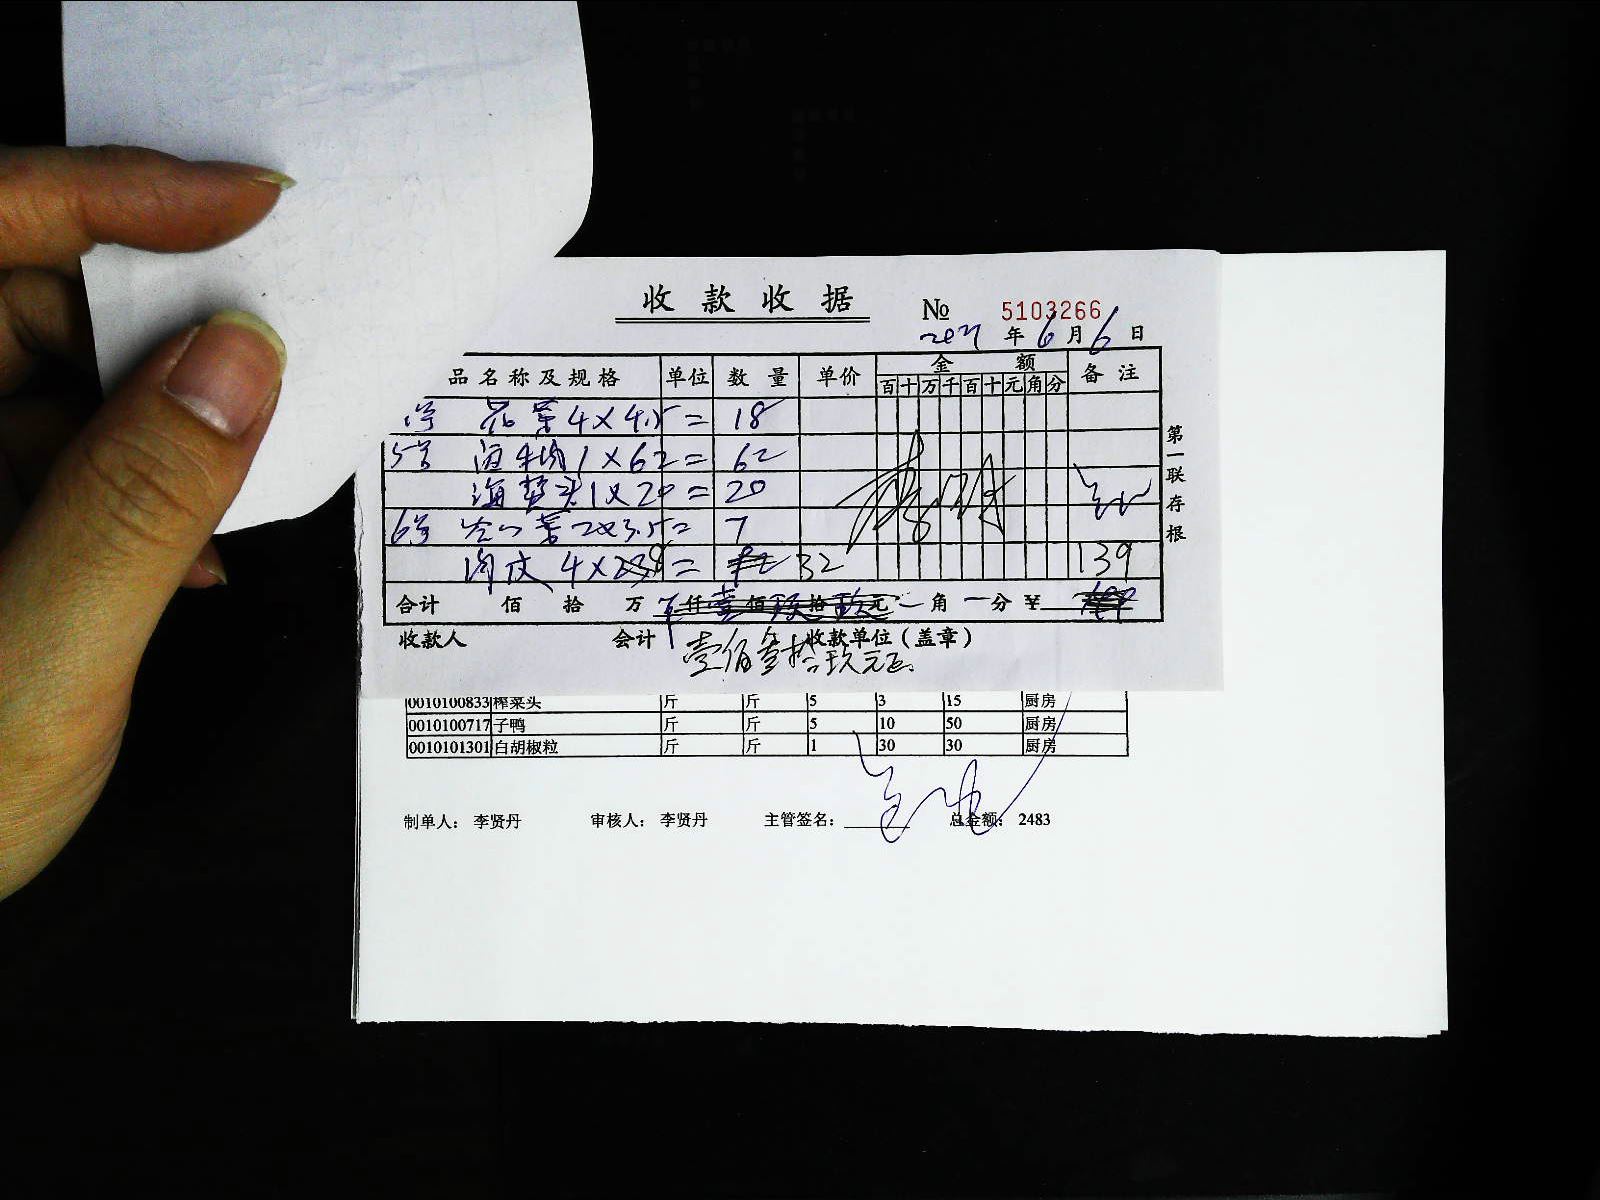 收款收据
№ 5103266
年 6 月 6 日
品名称及规格 单位 数量 单价 金额 备注
百 十 万 千 百 十 元 角 分
花菜 4×4.5= 18
5号 1×62= 62
海蜇头 1×20= 20
6号 2×3.5= 7
4× = 32 139
合计 佰 拾 万 仟 佰 拾 元 角 分 ¥
收款人 会计 收款单位(盖章)
壹佰叁拾玖元正
第一联存根
0010100833 榨菜头 斤 斤 5 3 15 厨房
0010100717 子鸭 斤 斤 5 10 50 厨房
0010101301 白胡椒粒 斤 斤 1 30 30 厨房
制单人: 李贤丹 审核人: 李贤丹 主管签名: 总金额: 2483